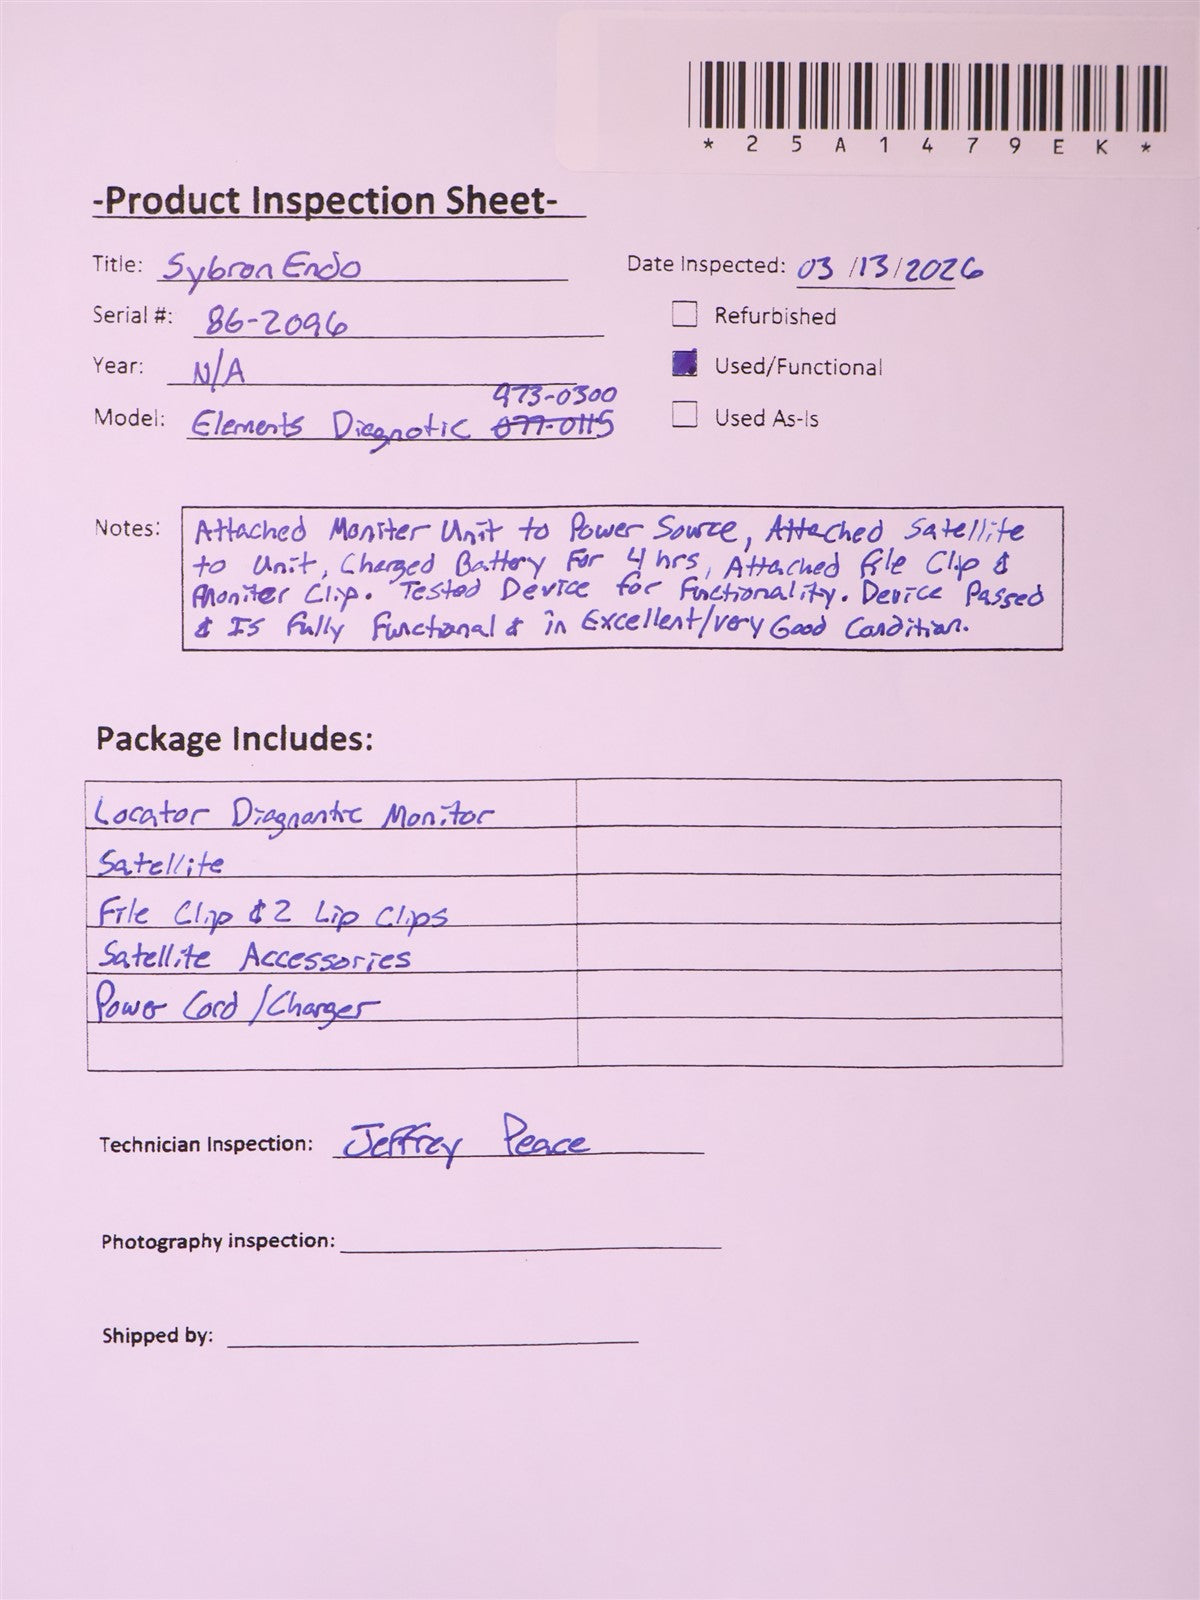 *25A1479EK*
-Product Inspection Sheet-
Title: Sybron Endo
Date Inspected: 03/13/2026
Serial #: 86-2096
Refurbished
Year: N/A
Used/Functional
973-0300
Model: Elements Diagnotic 077-0115
Used As-Is
Notes: Attached Moniter Unit to Power Source, Attached Satellite
to Unit, Charged Battery For 4 hrs, Attached File Clip &
Moniter Clip. Tested Device for Functionality. Device Passed
& Is Fully Functional & in Excellent/very Good Condition.
Package Includes:
Locator Diagnantic Monitor
Satellite
File Clip & 2 Lip Clips
Satellite Accessories
Power Cord/Charger
Technician Inspection: Jeffrey Peace
Photography inspection:
Shipped by: